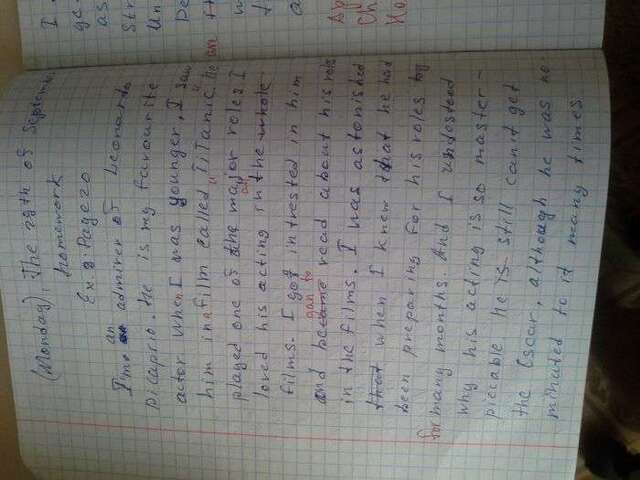 (Monday), The 29th of September.
homework
Ex 8 Page 20
I'm an admirer of Leonardo
Dicaprio. He is my favourite
actor when I was younger, I saw
him in a film called "TiTanic". He
played one of the major roles I
loved his acting in the whole
films. I got intrested in him
and became gan to read about his role
in the films. I was astonished
that when I knew that he had
been preparing for his roles by
for many months. And I undostand
why his acting is so master-
piecable he is still can't get
the Oscar, although he was no-
minated to it many times